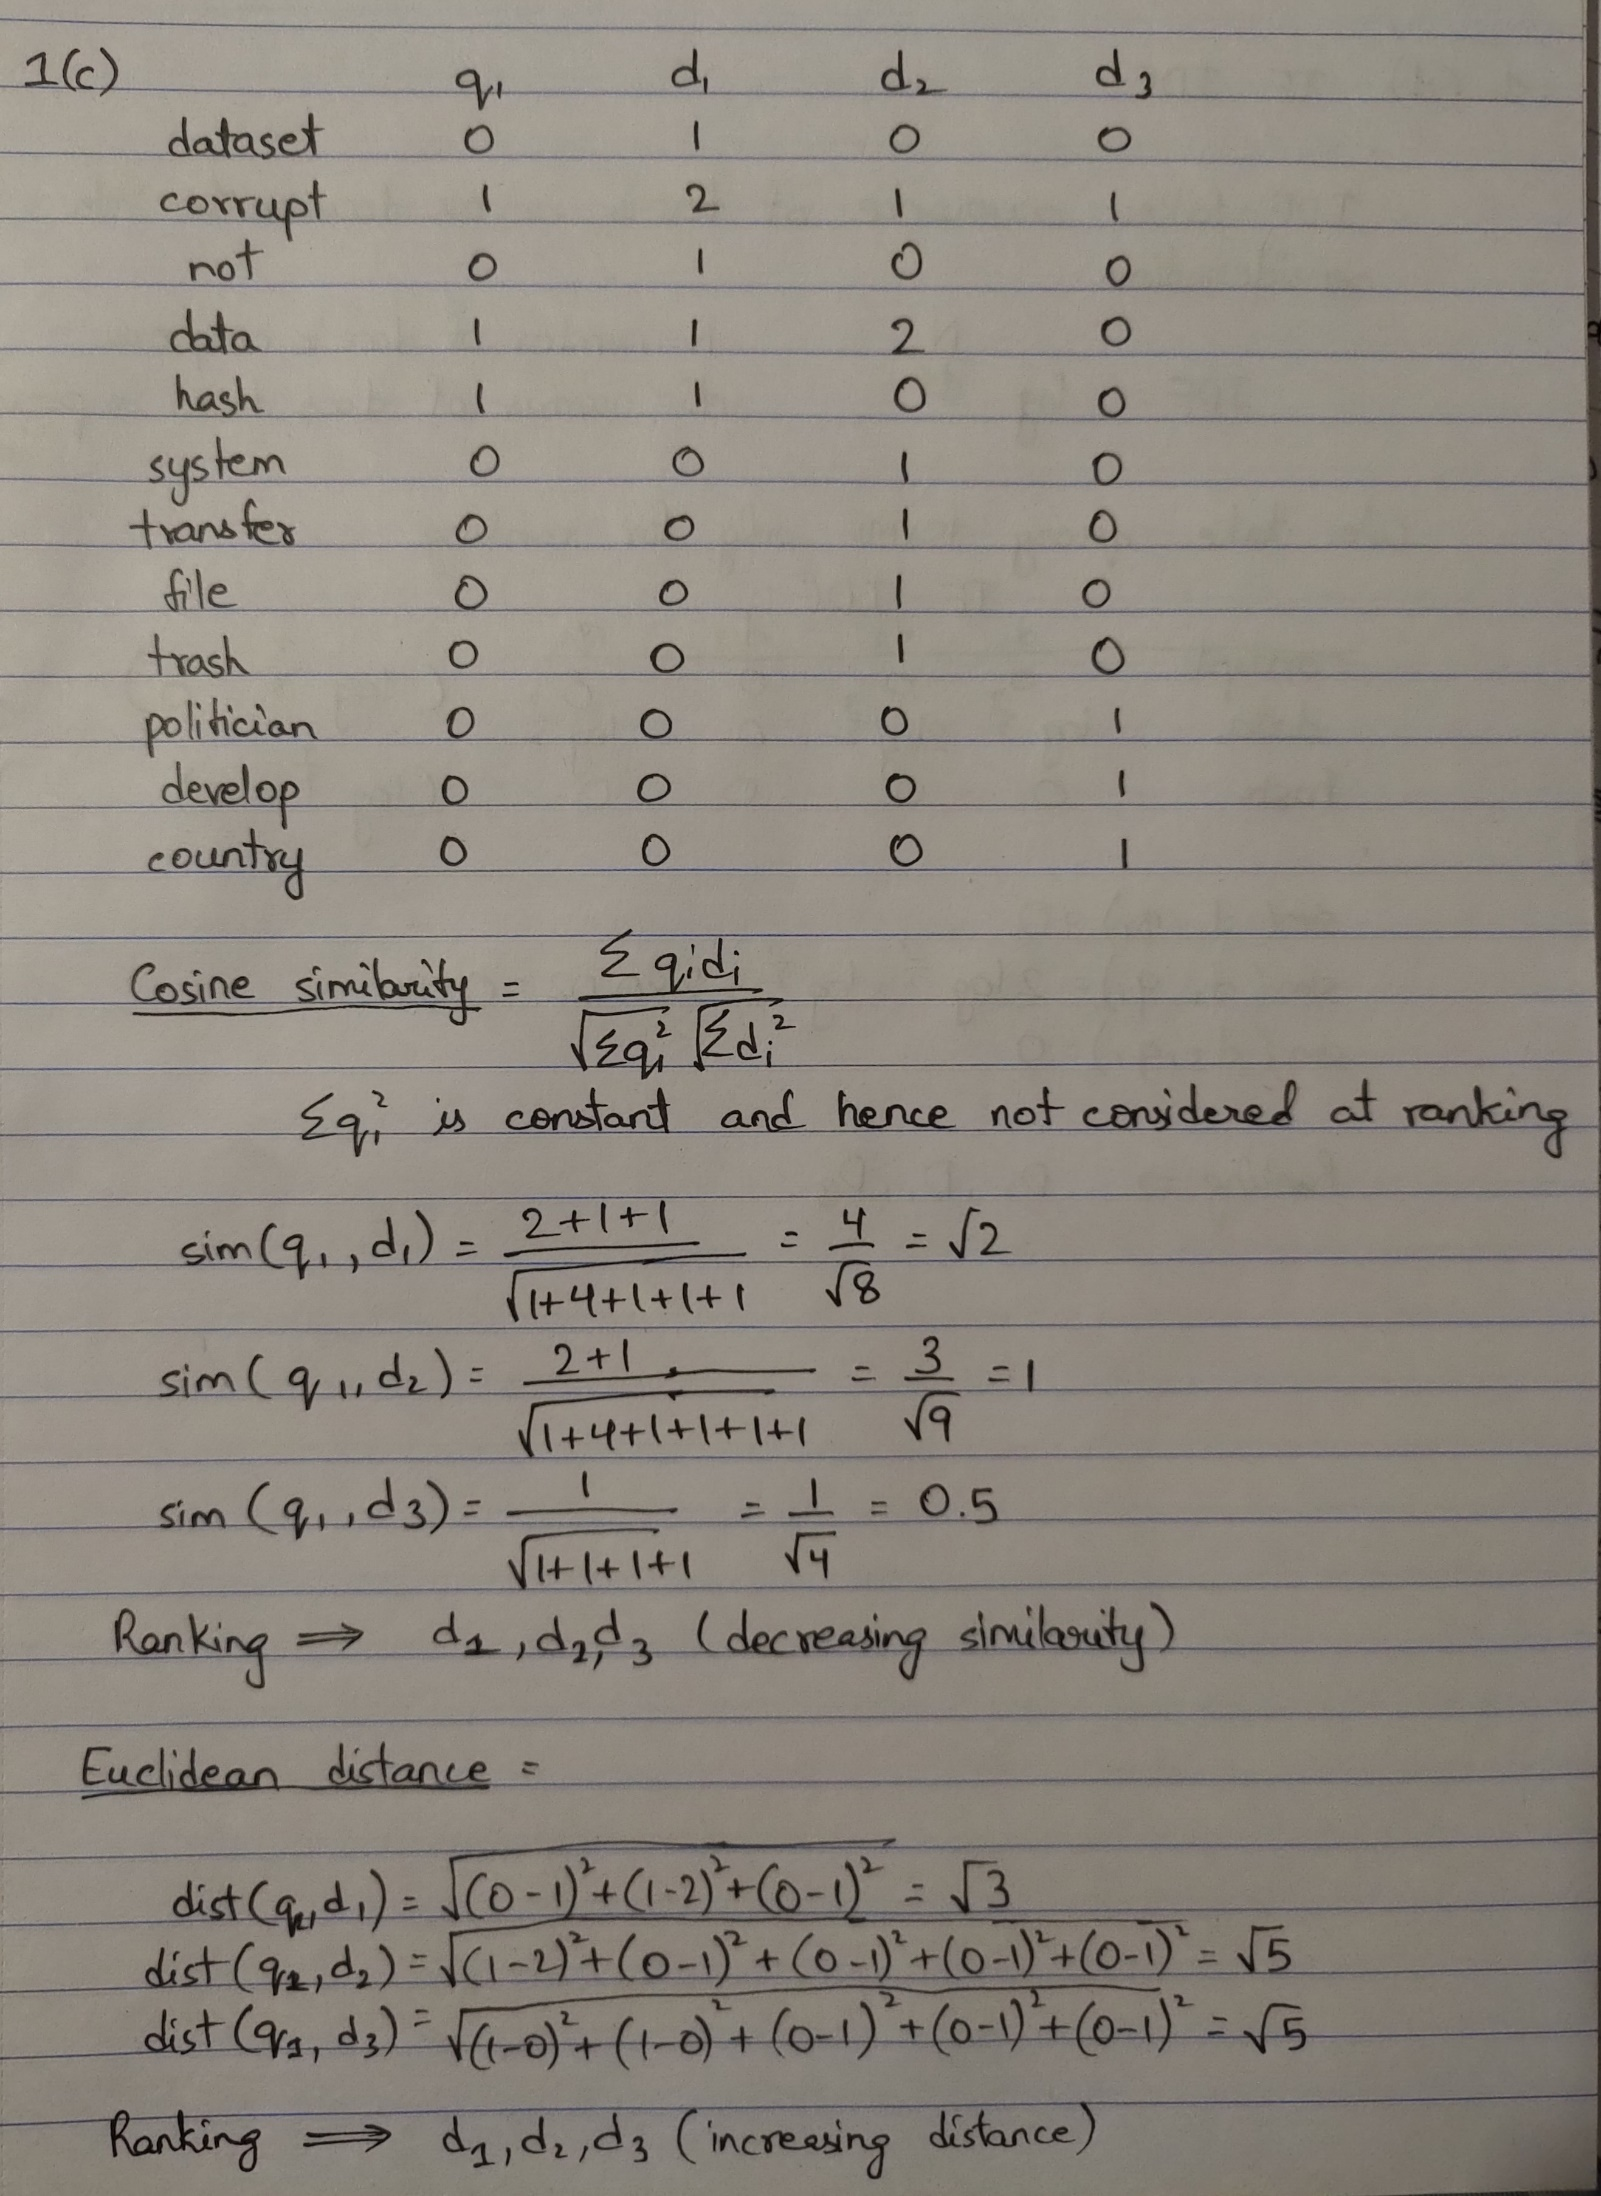 1(c) q₁ d₁ d₂ d₃
dataset 0 1 0 0
corrupt 1 2 1 1
not 0 1 0 0
data 1 1 2 0
hash 1 1 0 0
system 0 0 1 0
transfer 0 0 1 0
file 0 0 1 0
trash 0 0 1 0
politician 0 0 0 1
develop 0 0 0 1
country 0 0 0 1
Cosine similarity = Σqᵢdᵢ / √Σqᵢ² √Σdᵢ²
Σqᵢ² is constant and hence not considered at ranking
sim(q₁,d₁) = 2+1+1 / √1+4+1+1+1 = 4/√8 = √2
sim(q₁,d₂) = 2+1 / √1+4+1+1+1+1 = 3/√9 = 1
sim(q₁,d₃) = 1 / √1+1+1+1 = 1/√4 = 0.5
Ranking ⟹ d₁, d₂, d₃ (decreasing similarity)
Euclidean distance =
dist(q₁,d₁) = √(0-1)²+(1-2)²+(0-1)² = √3
dist(q₁,d₂) = √(1-2)²+(0-1)²+(0-1)²+(0-1)²+(0-1)² = √5
dist(q₁,d₃) = √(1-0)²+(1-0)²+(0-1)²+(0-1)²+(0-1)² = √5
Ranking ⟹ d₁, d₂, d₃ (increasing distance)